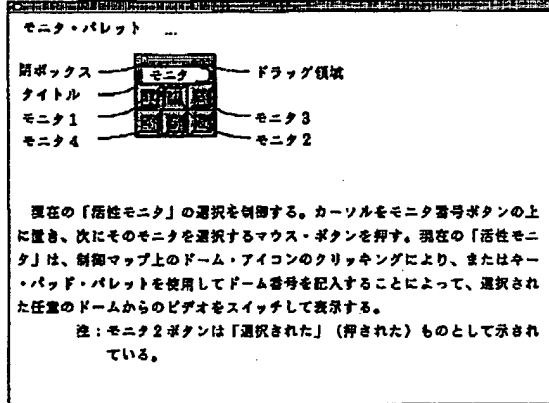 モニタ・パレット …
閉ボックス
モニタ
ドラッグ領域
タイトル
モニタ1
モニタ3
モニタ4
モニタ2
現在の「活性モニタ」の選択を制御する。カーソルをモニタ番号ボタンの上
に置き、次にそのモニタを選択するマウス・ボタンを押す。現在の「活性モニ
タ」は、制御マップ上のドーム・アイコンのクリッキングにより、またはキー
・パッド・パレットを使用してドーム番号を記入することによって、選択され
た任意のドームからのビデオをスイッチして表示する。
注：モニタ2ボタンは「選択された」（押された）ものとして示され
ている。